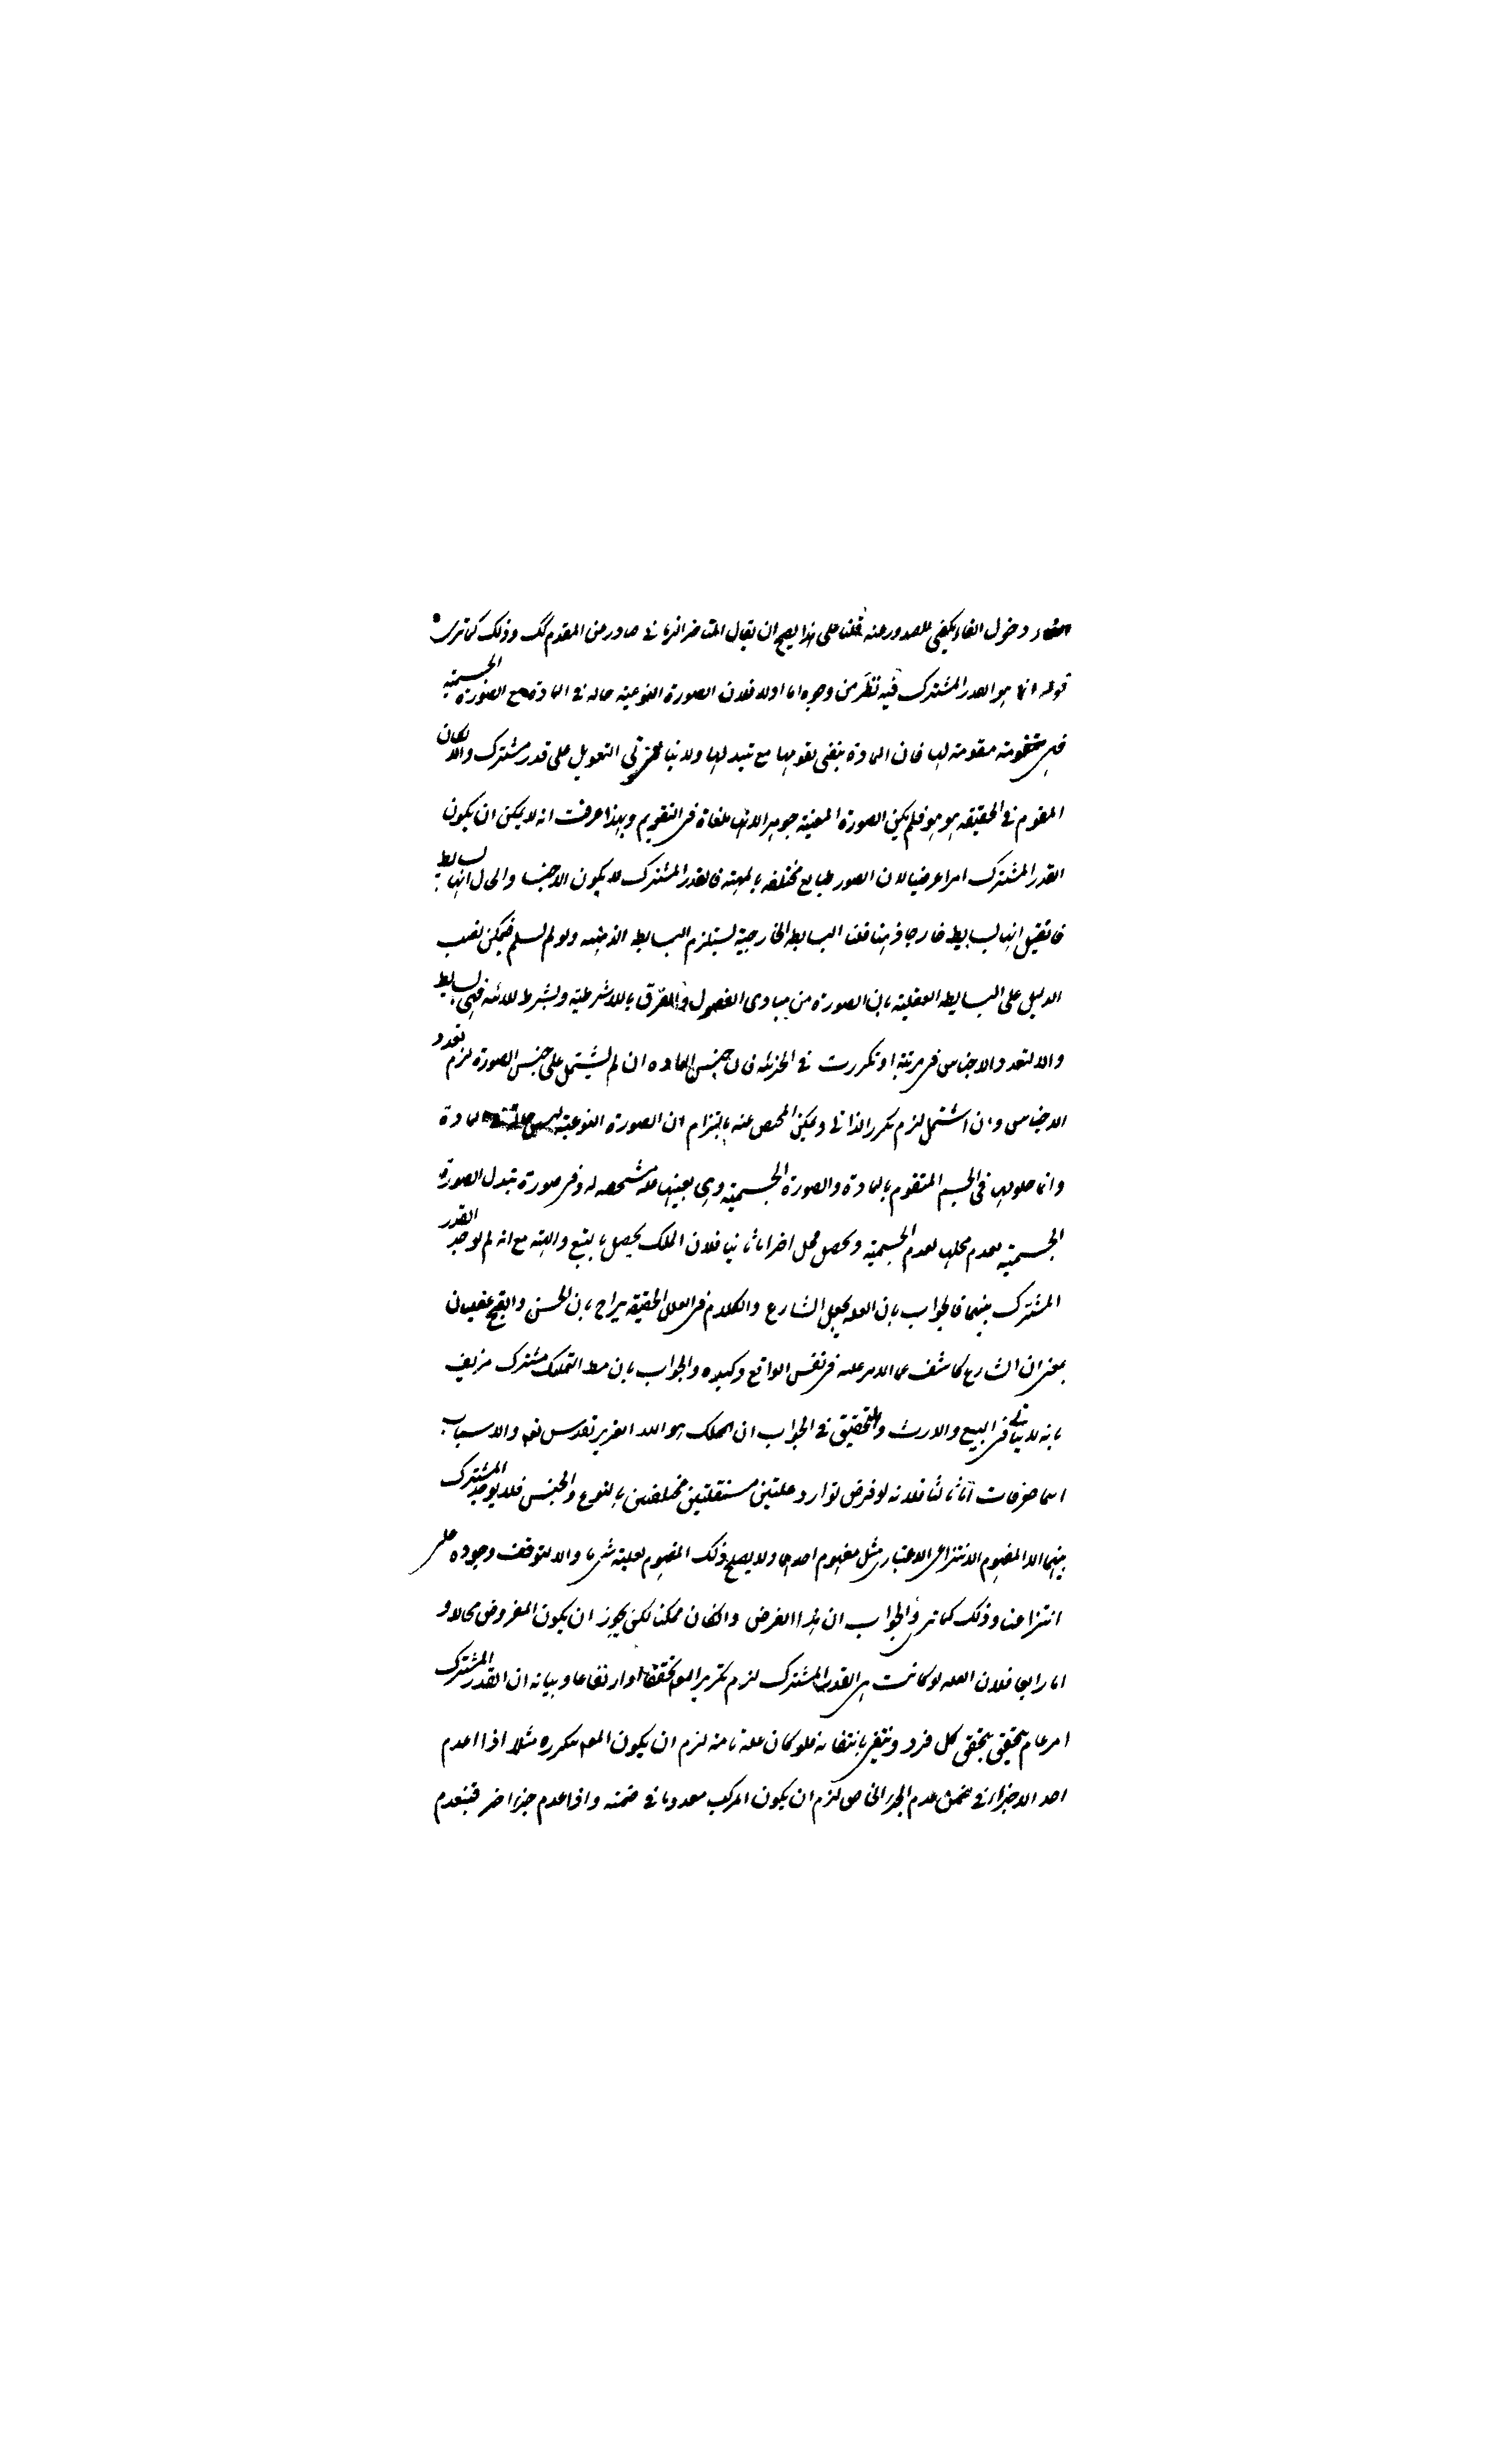 دخول الفاء يكفي للصدور عنه قلنا على هذا يصح ان يقال المتاخر الزماني صادر من المقدم كك وذلك كما ترى
قوله انما هو القدر المشترك فيه نظر من وجوه اما اولا فلان الصورة النوعية حاله في المادة مع الصورة الجسمية
فهي مقومة لها فان المادة يبقى تقومها مع تبدلها ولا يتاتى التعويل على قدر مشترك والا لكان
المقوم في الحقيقة هو هو فلم يكن الصورة المعينة جوهرا لانها ملغاة في التقويم وبهذا عرفت انه لا يمكن ان يكون
القدر المشترك امرا عرضيا لان الصور طبايع مختلفه بالمهية فالقدر المشترك لا يكون الا جنسا والحال انها بسايط
فان قيل انها بسايط خارجا وذهنا قلنا البساطه الخارجية يستلزم البساطه الذهنيه ولو لم يسلم فيمكن نصب
الدليل على البساطه العقلية بان الصورة من مبادى الفصول والفرق باللاشرطية وبشرط لائيه فهي بسايط
والا لتعدد الاجناس في مرتبة او تكررت في الحزيله فان جنس الماده ان لم يشتمل على جنس الصورة لزم تعدد
الاجناس وان اشتمل لزم تكرر الذاتي ويمكن المخلص عنه بالتزام ان الصورة النوعية المادة
وانما حلولها في الجسم المتقوم بالمادة والصورة الجسمية وهي بعينها علة مشخصه له وفي صورة تبدل الصورة
الجسمية ينعدم محلها لعدم الجسمية ويحصل محل اخر اما ثانيا فلان الملك يحصل بالبيع والهبة مع انه لم يوجد القدر
المشترك بينهما فالجواب بان العله بجعل الشارع والكلام في العلل الحقيقة يزاح بان الحسن والقبح عقليان
بمعنى ان الشارع كاشف عما الامر عليه في نفس الواقع والجواب بان التملك مشترك مزيف
بانه لا يتاتى في البيع والارث والتحقيق في الجواب ان المملك هو الله العزيز تقدس نعم والاسباب
انما معرفات اما ثالثا فلانه لو فرض توارد علتين مستقلتين مختلفتين بالنوع والجنس فلا يوجد المشترك
بينهما الا المفهوم الانتزاعي الاعتباري مثل مفهوم احدهما ولا يصلح ذلك المفهوم لعلية شيء ما والا لتوقف وجوده على
انتزاعنا وذلك كما ترى والجواب ان هذا الفرض وان كان ممكنا لكن يجوز ان يكون المفروض محالا و
اما رابعا فلان العله لو كانت هي القدر المشترك لزم تكرير المعلول تحققا او ارتفاعا وبيانه ان القدر المشترك
امر عام يتحقق بتحقق كل فرد وينتفي بانتفائه فلو كان علة تامة لزم ان يكون المعلول متكررة مثلا اذا انعدم
احد الاجزاء في ضمن عدم الجزء الخاص لزم ان يكون المركب معدوما في ضمنه واذا عدم جزء اخر فينعدم